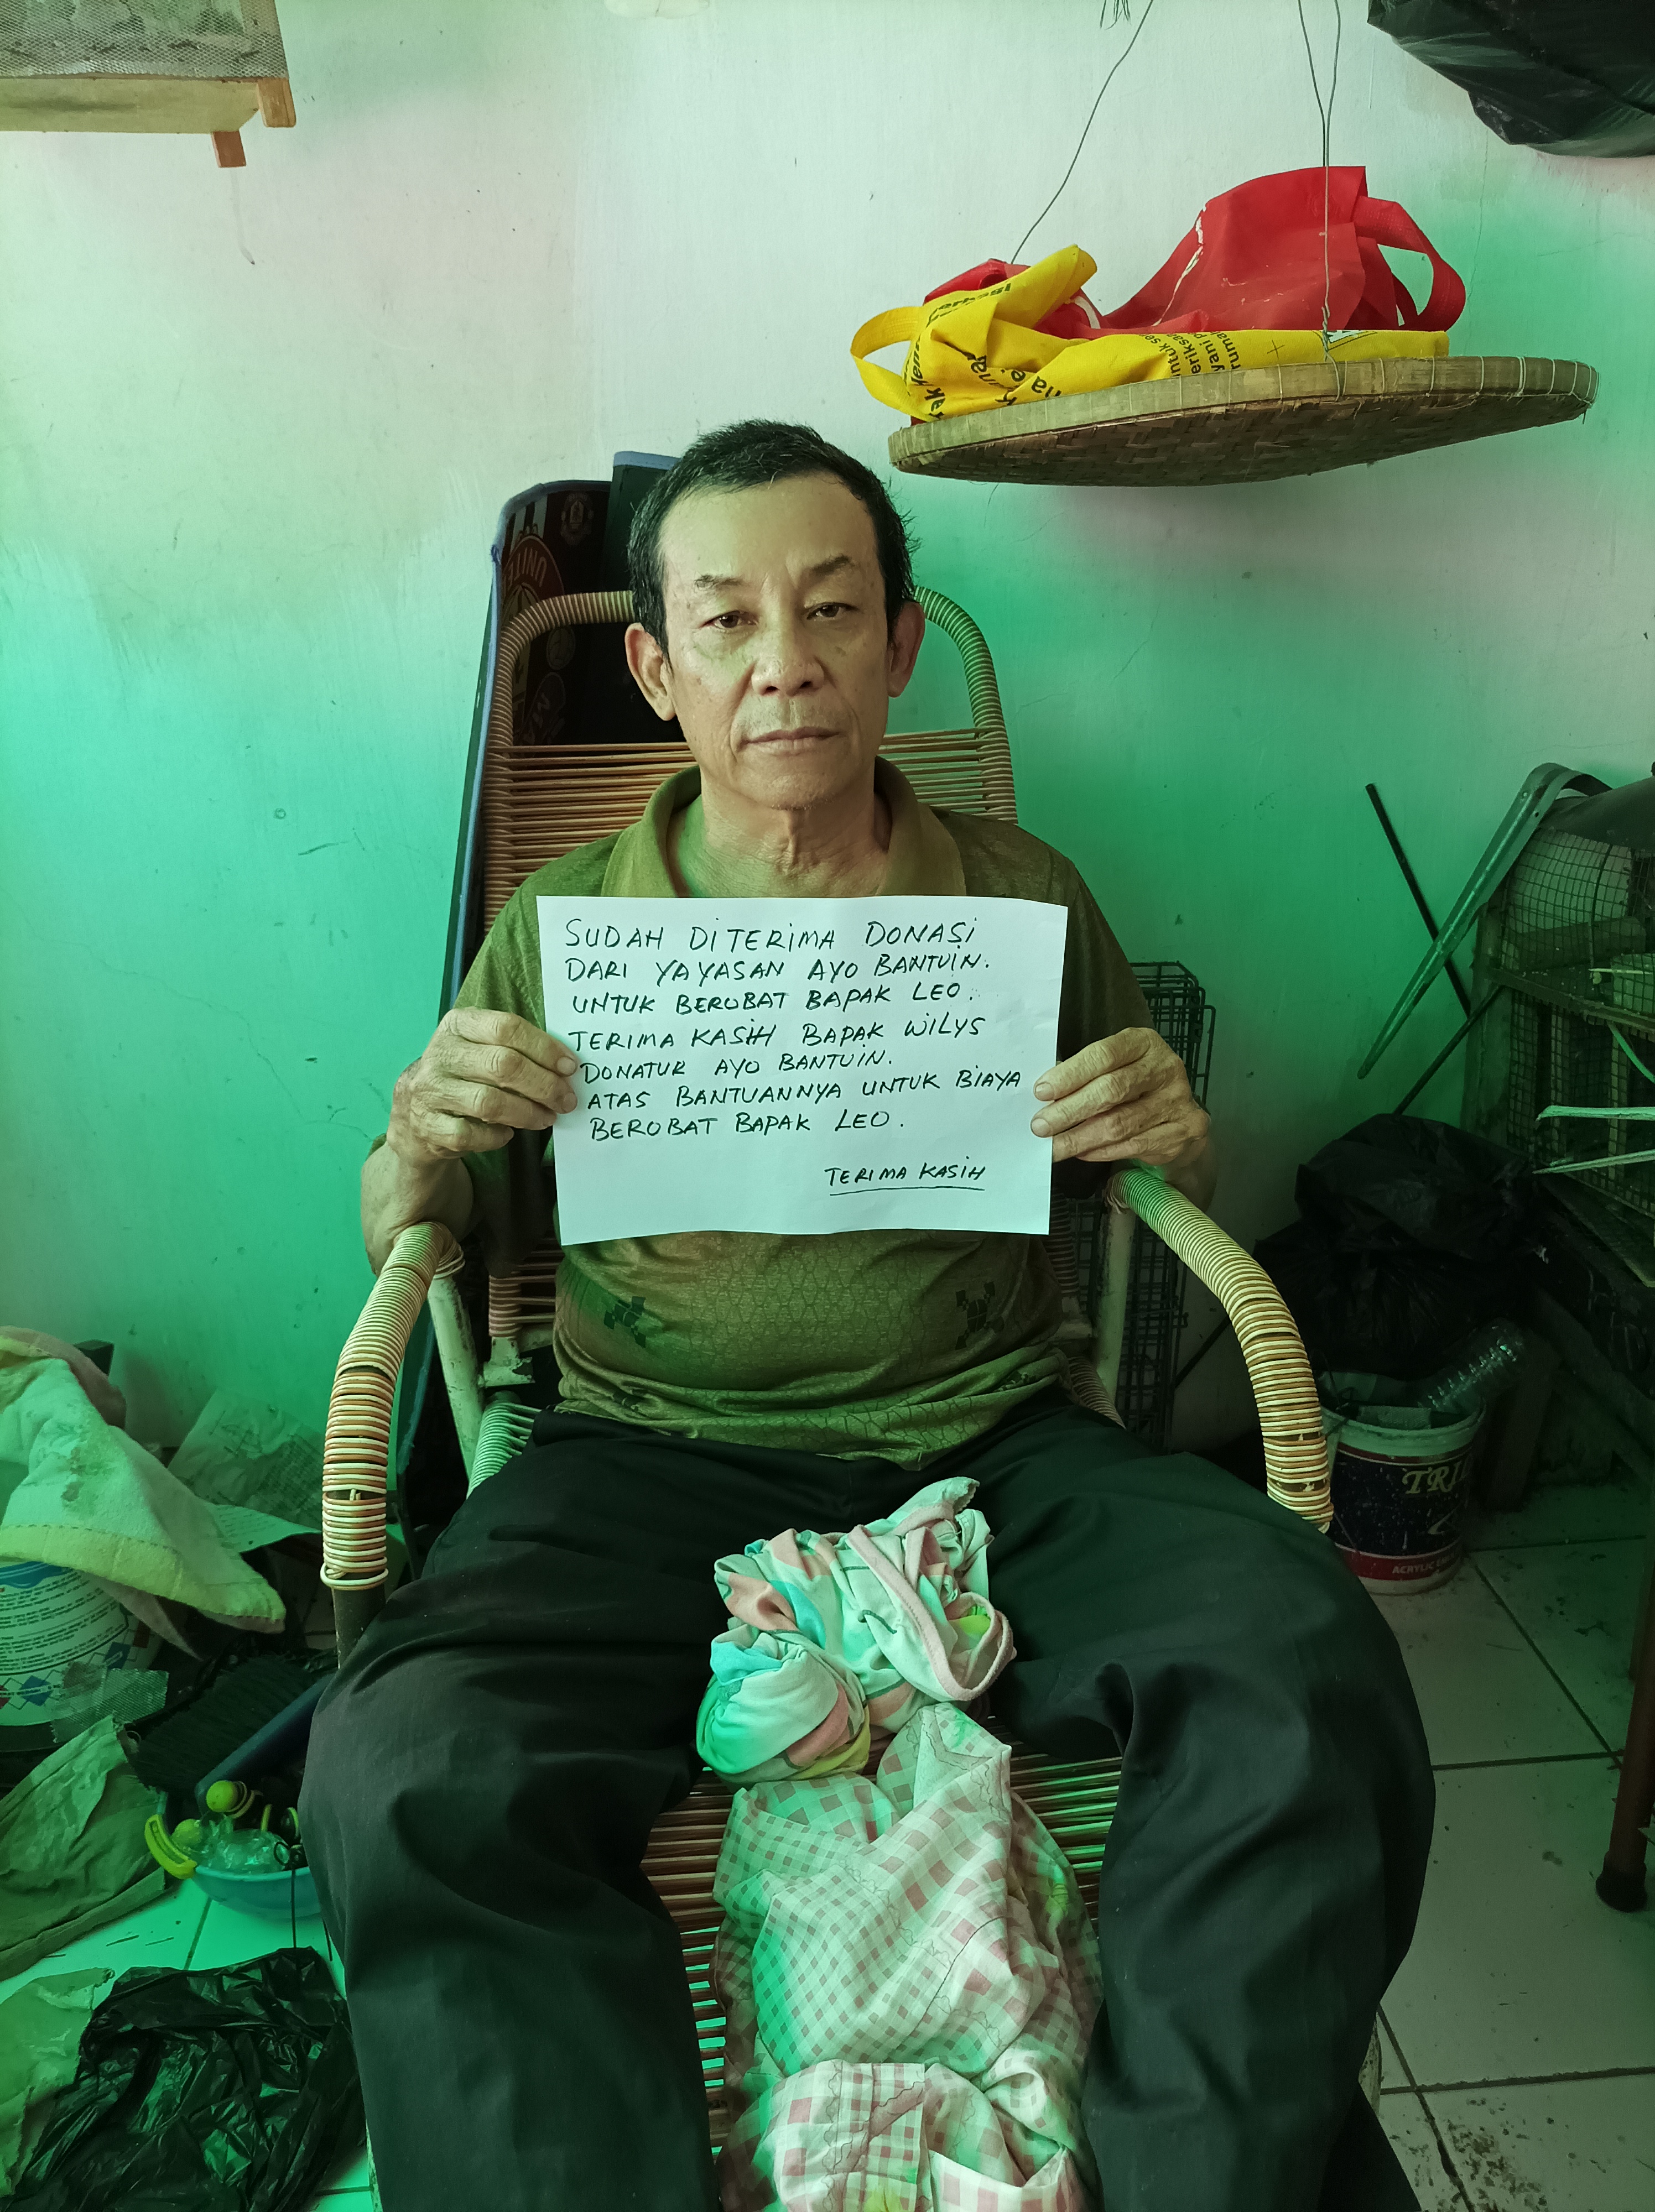 SUDAH DITERIMA DONASI
DARI YAYASAN AYO BANTUIN.
UNTUK BEROBAT BAPAK LEO.
TERIMA KASIH BAPAK WILYS
DONATUR AYO BANTUIN.
ATAS BANTUANNYA UNTUK BIAYA
BEROBAT BAPAK LEO.
TERIMA KASIH
UNITE
TRI
ACRYLIC